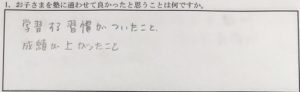 1、お子さまを塾に通わせて良かったと思うことは何ですか。
学習する習慣がついたこと、
成績が上がったこと